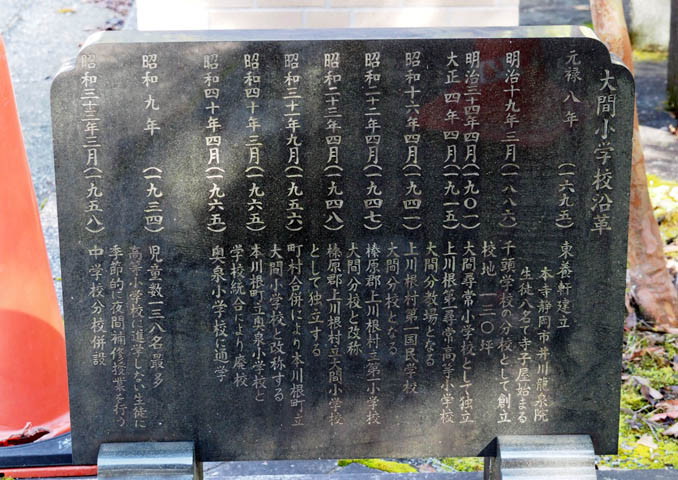 大間小学校沿革
元禄八年(一六九五)東養軒建立
本寺静岡市井川龍泉院
生徒八名で寺子屋始まる
明治十九年三月(一八八六)千頭学校の分校として創立
校地一三〇坪
明治三十四年四月(一九〇一)大間尋常小学校として独立
大正四年四月(一九一五)上川根第一尋常高等小学校
大間分教場となる
昭和十六年四月(一九四一)上川根村第一国民学校
大間分校となる
昭和二十二年四月(一九四七)榛原郡上川根村立第一小学校
大間分校と改称
昭和二十三年四月(一九四八)榛原郡上川根村立大間小学校
として独立する
昭和三十一年九月(一九五六)町村合併により本川根町立
大間小学校と改称する
昭和四十年三月(一九六五)本川根町立奥泉小学校と
学校統合により廃校
昭和四十年四月(一九六五)奥泉小学校に通学
昭和九年(一九三四)児童数一三八名最多
高等小学校に進学しない生徒に
季節的に夜間補修授業を行う
昭和三十三年三月(一九五八)中学校分校併設